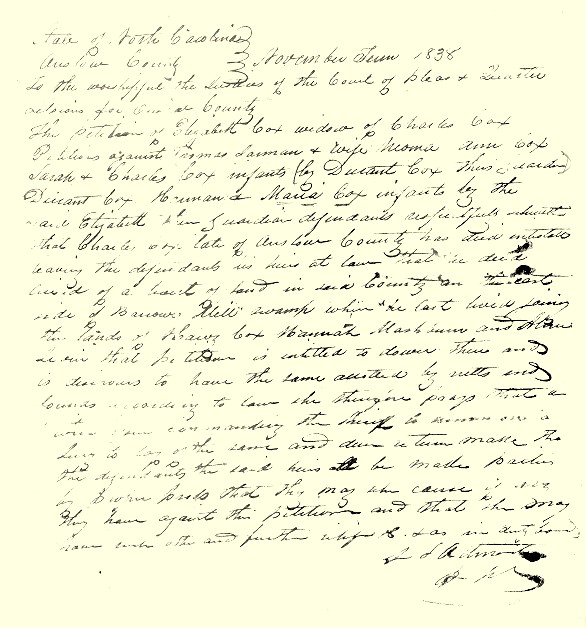 State of North Carolina
Onslow County } November Term 1838
To the worshipful the Justices of the Court of Pleas & Quarter
sessions for Onslow County
The petition of Elizabeth Cox widow of Charles Cox
Petitions against Thomas Jarman & wife Ann Cox
Sarah & Charles Cox infants (by Durant Cox their guardian)
Durant Cox & Maria Cox infants by the
said Elizabeth their Guardian defendants respectfully sheweth
that Charles Cox late of Onslow County has died intestate
leaving the defendants his heirs at law that he died
seized of a tract of land in said County on the east
side of swamp where he last lived joining
the lands of Cox Hannah Mashburn and
that Petitioner is entitled to dower there and
is desirous to have the same allotted by metts and
bounds according to law she therefore prays that a
writ commanding the Sheriff to summon a
Jury to lay off the same and due return make the
the defendants the said heirs all be made parties
by that they may shew cause if any
they have against this petition and that she may
have such other and further relief & as in duty bound